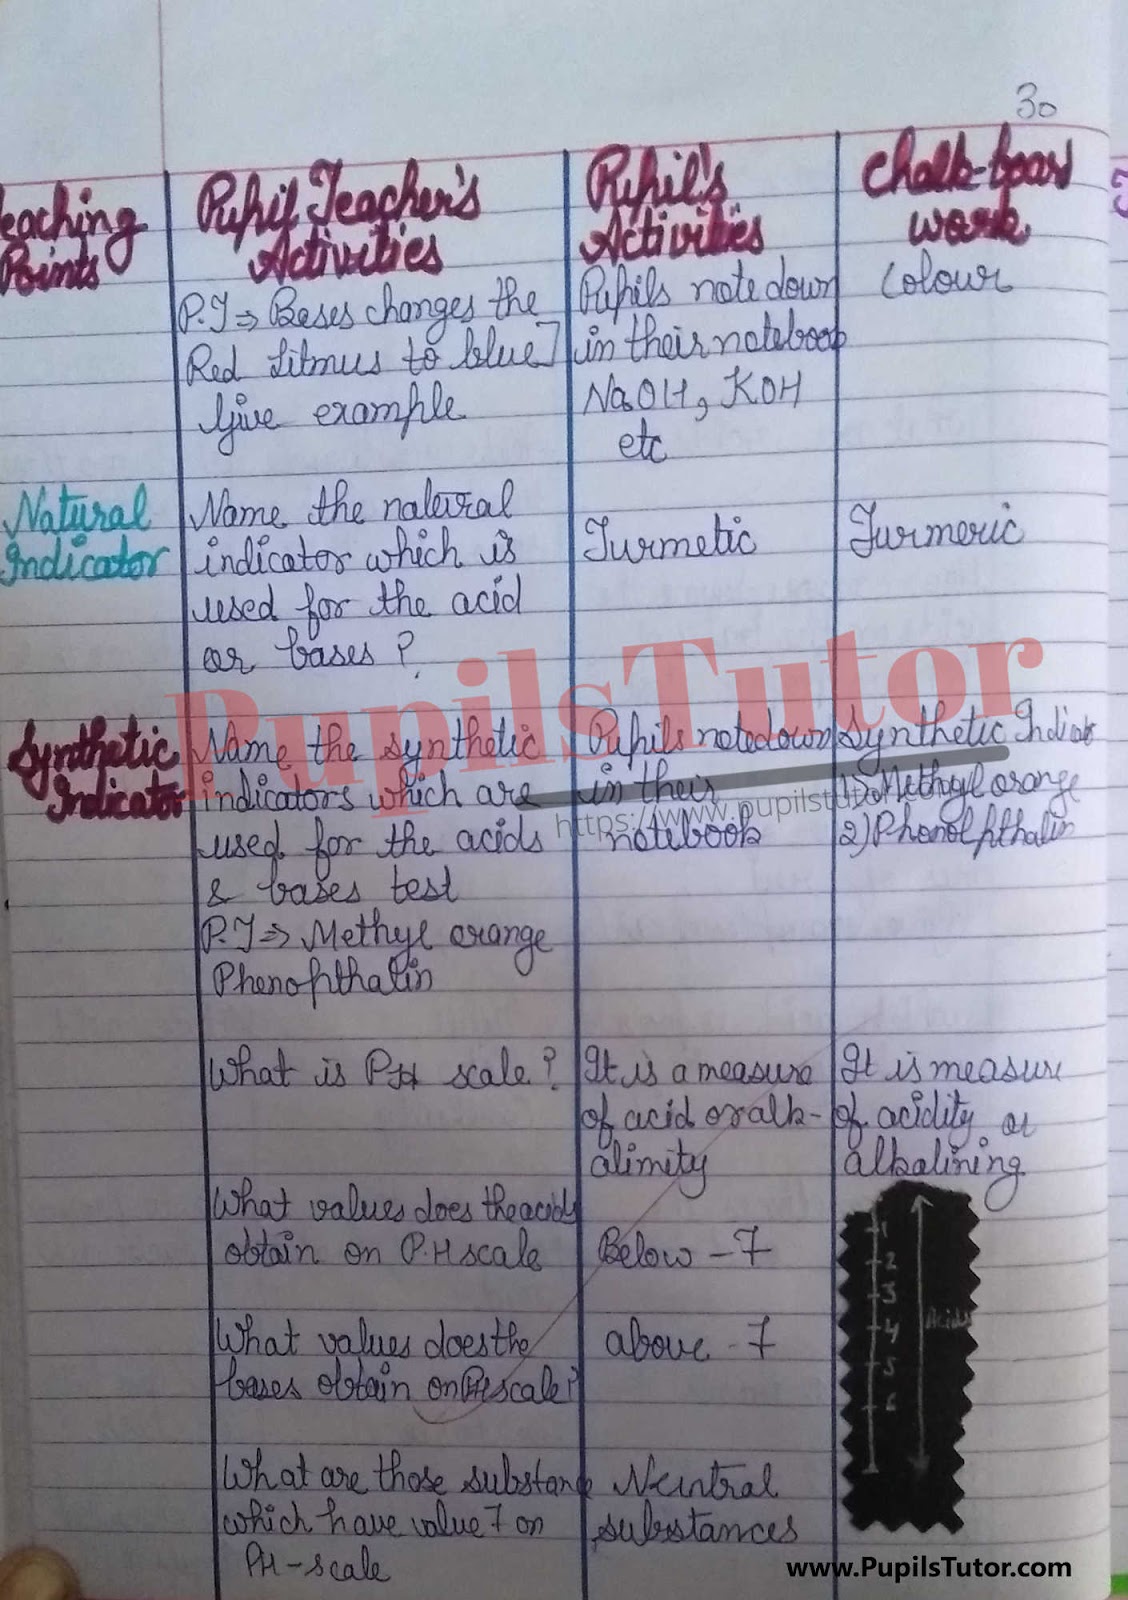 30
Teaching
Points
Pupil Teacher's
Activities
Pupil's
Activities
Chalk-board
work
P.T⇒ Bases changes the
Red Litmus to blue
Give example
Pupils note down
in their notebook
NaOH, KOH
etc
Colour
Natural
Indicator
Name the natural
indicator which is
used for the acid
or bases ?
Turmetic
Turmeric
Synthetic
Indicator
Name the synthetic
indicators which are
used for the acids
& bases test
P.T⇒ Methyl orange
Phenopthalin
Pupils note down
in their
notebook
Synthetic Indicator
1) Methyl orange
2) Phenolpthalin
What is PH scale ?
It is a measure
of acid or alk-
alimity
It is measure
of acidity or
alkalining
What values does the acids
obtain on P.H scale
Below - 7
What values does the
bases obtain on PH scale ?
above - 7
1
2
3
4
5
6
Acids
What are those substance
which have value 7 on
PH-scale
Neutral
substances
PupilsTutor
https://www.pupilstutor
www.PupilsTutor.com